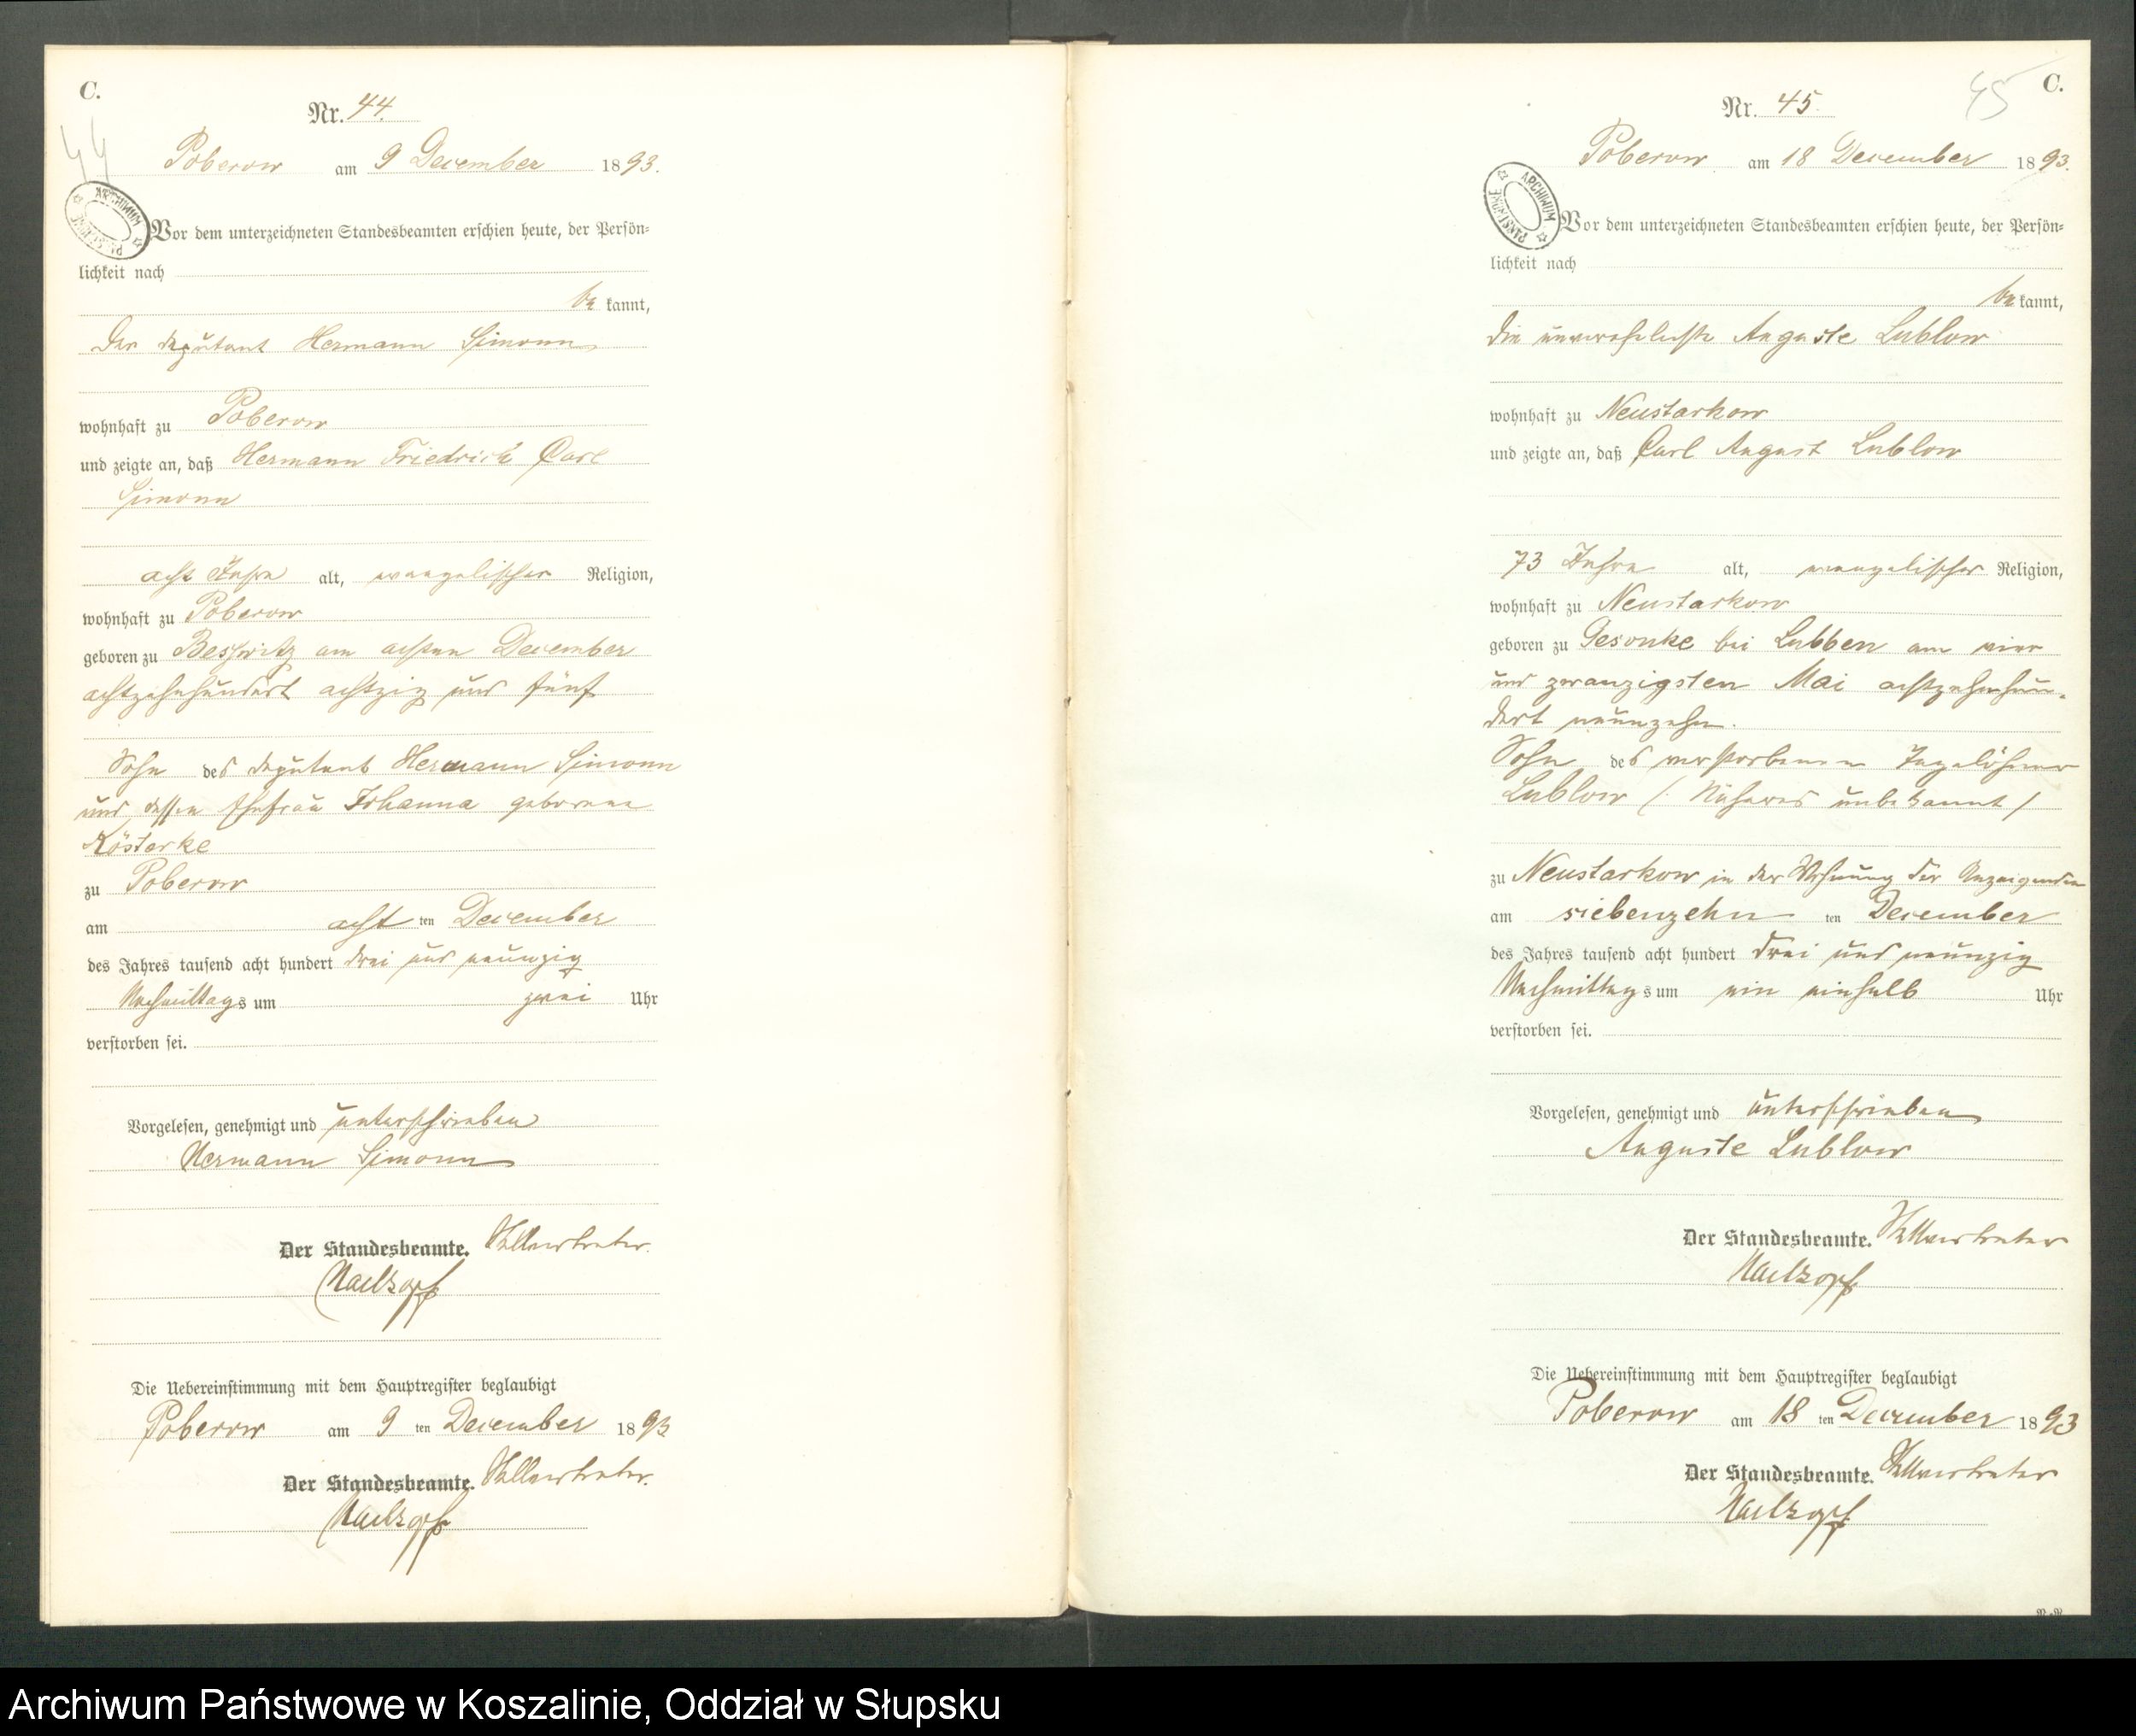 C.
Nr. 44.
44
Poberow am 9 December 1893.
ARCHIWUM PAŃSTWOWE
Vor dem unterzeichneten Standesbeamten erschien heute, der Persön-
lichkeit nach
be kannt,
Der deputant Hermann Simonn
wohnhaft zu Poberow
und zeigte an, daß Hermann Friedrich Carl
Simonn
acht Jahre alt, evangelischer Religion,
wohnhaft zu Poberow
geboren zu Besswitz am achten December
achtzehnhundert achtzig und fünf
Sohn des deputant Hermann Simonn
und dessen Ehefrau Johanna geborene
Kösterke
zu Poberow
am acht ten December
des Jahres tausend acht hundert drei und neunzig
Nachmittags um zwei Uhr
verstorben sei.
Vorgelesen, genehmigt und unterschrieben
Hermann Simonn
Der Standesbeamte. Stellvertreter.
Die Uebereinstimmung mit dem Hauptregister beglaubigt
Poberow am 9 ten December 1893
Der Standesbeamte. Stellvertreter.
C.
45
Nr. 45.
Poberow am 18 December 1893.
ARCHIWUM PAŃSTWOWE
Vor dem unterzeichneten Standesbeamten erschien heute, der Persön-
lichkeit nach
be kannt,
die unverehelichte Auguste Lublow
wohnhaft zu Neustarkow
und zeigte an, daß Carl August Lublow
73 Jahre alt, evangelischer Religion,
wohnhaft zu Neustarkow
geboren zu Gesonke bei Lubben am vier
und zwanzigsten Mai achtzehnhun-
dert neunzehn.
Sohn des verstorbenen Tagelöhner
Lublow /: Näheres unbekannt /
zu Neustarkow in der Wohnung der Anzeigenden
am siebenzehn ten December
des Jahres tausend acht hundert drei und neunzig
Nachmittags um ein einhalb Uhr
verstorben sei.
Vorgelesen, genehmigt und unterschrieben
Auguste Lublow
Der Standesbeamte. Stellvertreter
Die Uebereinstimmung mit dem Hauptregister beglaubigt
Poberow am 18 ten December 1893
Der Standesbeamte. Stellvertreter
Archiwum Państwowe w Koszalinie, Oddział w Słupsku